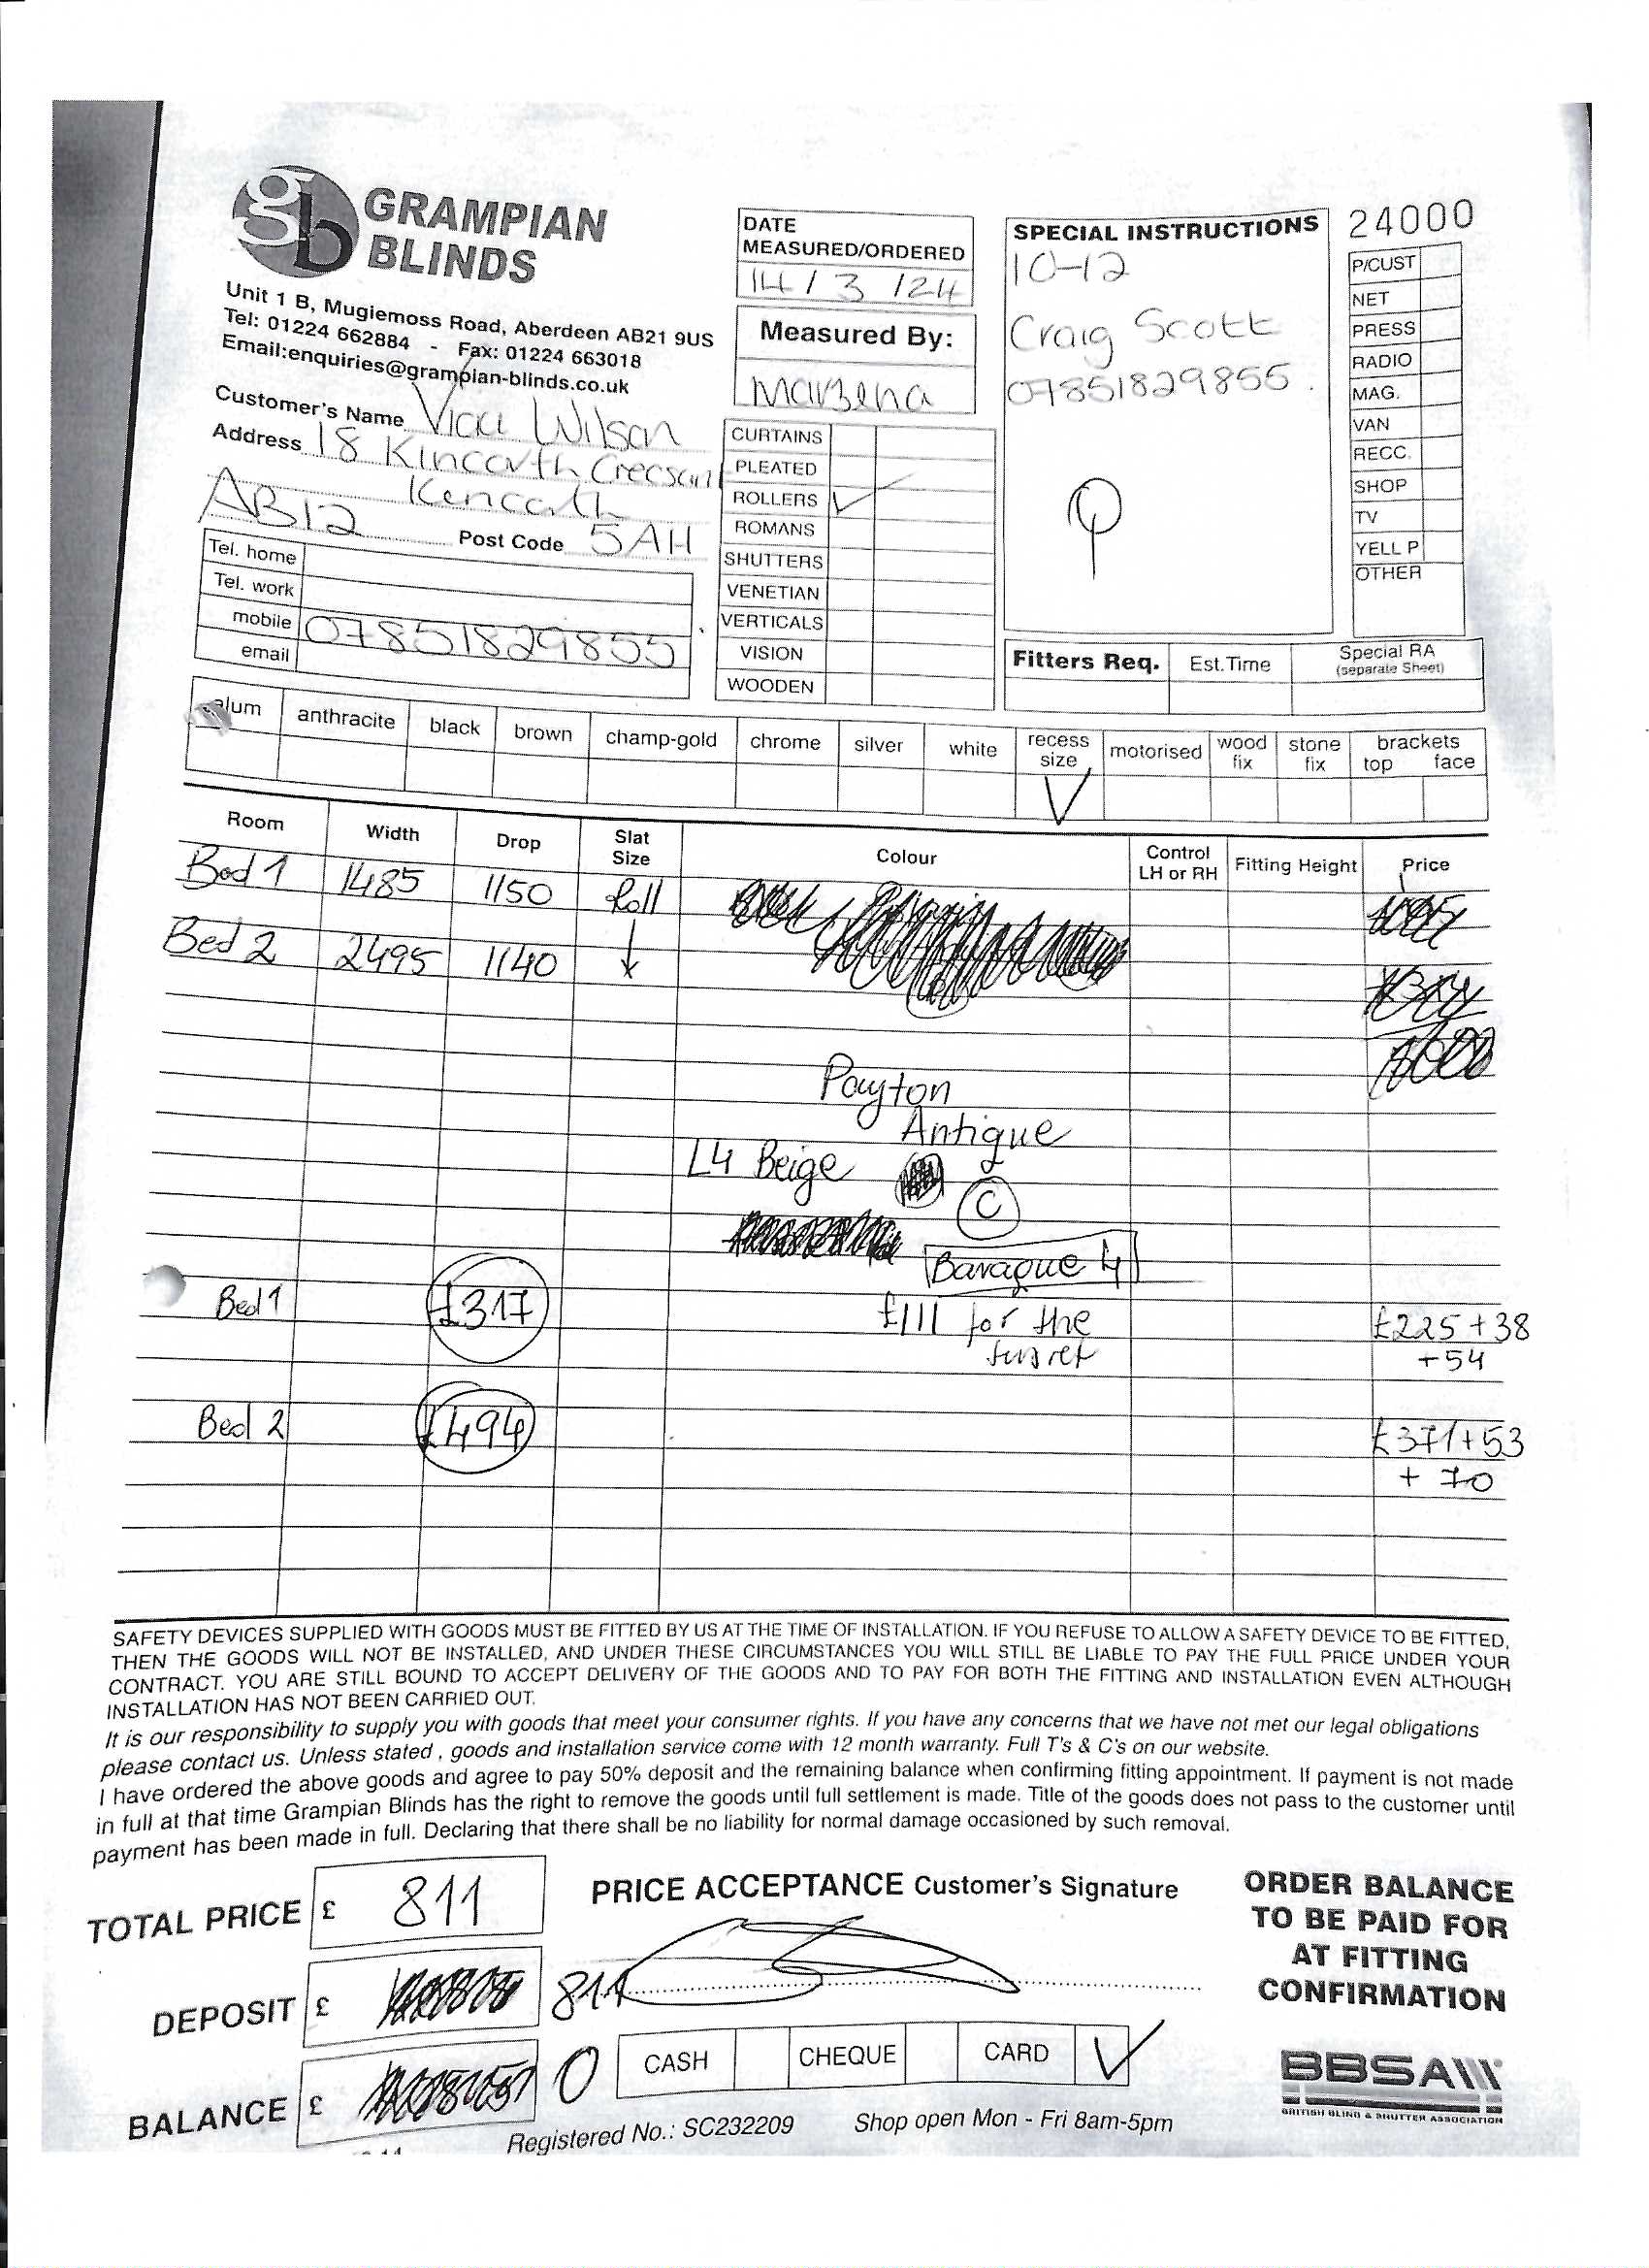 GRAMPIAN
BLINDS
Unit 1 B, Mugiemoss Road, Aberdeen AB21 9US
Tel: 01224 662884 - Fax: 01224 663018
Email:enquiries@grampian-blinds.co.uk
DATE
MEASURED/ORDERED
14 / 3 / 24
Measured By:
Marzena
SPECIAL INSTRUCTIONS
10-12
Craig Scott
07851829855.
24000
P/CUST
NET
PRESS
RADIO
MAG.
VAN
RECC.
SHOP
TV
YELL P
OTHER
Customer's Name Vicci Wilson
Address 18 Kincorth Crecsant
Kencoth
AB12 Post Code 5AH
Tel. home
Tel. work
mobile 07851829855
email
CURTAINS
PLEATED
ROLLERS ✓
ROMANS
SHUTTERS
VENETIAN
VERTICALS
VISION
WOODEN
Fitters Req. Est.Time Special RA
(separate Sheet)
alum anthracite black brown champ-gold chrome silver white recess size motorised wood fix stone fix brackets top face
✓
Room Width Drop Slat Size Colour Control LH or RH Fitting Height Price
Bed 1 1485 1150 Roll
Bed 2 2495 1140
Payton
Antique
L4 Beige
C
Baraque 4
Bed 1 £317 £111 for the £225 + 38
+ 54
Bed 2 £494 £371 + 53
+ 70
SAFETY DEVICES SUPPLIED WITH GOODS MUST BE FITTED BY US AT THE TIME OF INSTALLATION. IF YOU REFUSE TO ALLOW A SAFETY DEVICE TO BE FITTED,
THEN THE GOODS WILL NOT BE INSTALLED, AND UNDER THESE CIRCUMSTANCES YOU WILL STILL BE LIABLE TO PAY THE FULL PRICE UNDER YOUR
CONTRACT. YOU ARE STILL BOUND TO ACCEPT DELIVERY OF THE GOODS AND TO PAY FOR BOTH THE FITTING AND INSTALLATION EVEN ALTHOUGH
INSTALLATION HAS NOT BEEN CARRIED OUT.
It is our responsibility to supply you with goods that meet your consumer rights. If you have any concerns that we have not met our legal obligations
please contact us. Unless stated , goods and installation service come with 12 month warranty. Full T's & C's on our website.
I have ordered the above goods and agree to pay 50% deposit and the remaining balance when confirming fitting appointment. If payment is not made
in full at that time Grampian Blinds has the right to remove the goods until full settlement is made. Title of the goods does not pass to the customer until
payment has been made in full. Declaring that there shall be no liability for normal damage occasioned by such removal.
TOTAL PRICE £ 811
PRICE ACCEPTANCE Customer's Signature
ORDER BALANCE
TO BE PAID FOR
AT FITTING
CONFIRMATION
DEPOSIT £ 811
BALANCE £ 0
CASH CHEQUE CARD ✓
BBSA
BRITISH BLIND & SHUTTER ASSOCIATION
Registered No.: SC232209 Shop open Mon - Fri 8am-5pm